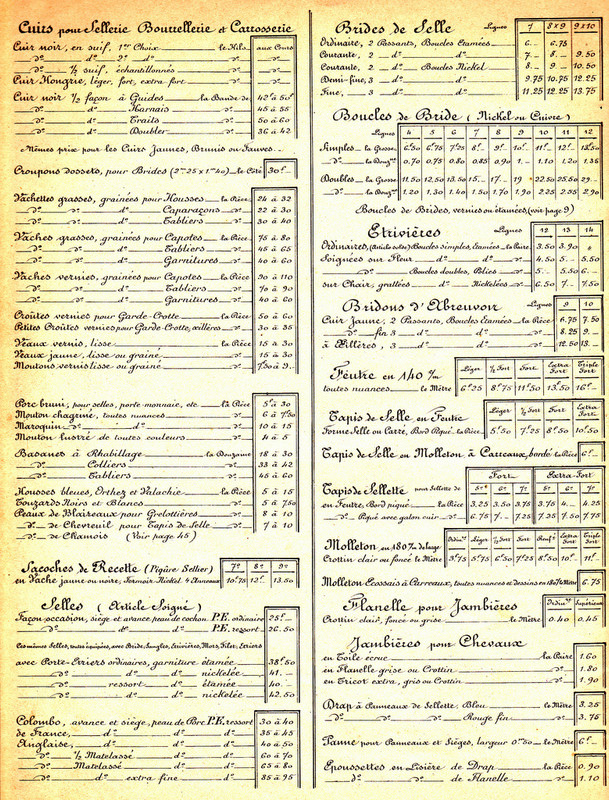 Cuirs pour Sellerie Bourrellerie et Carrosserie
Cuir noir, en suif, 1er Choix le Kilo aux Cours
_dº_ _dº_ 2º _dº_ _dº_
_dº_ ½ suif, échantillonnés _dº_
Cuir Hongrie, léger, fort, extra fort _dº_
Cuir noir ½ façon à Guides la Bande de 42 à 50f
_dº_ Harnais _dº_ 45 à 55
_dº_ Traits _dº_ 50 à 60
_dº_ Doubler _dº_ 36 à 42
Mêmes prix pour les Cuirs Jaunes, Brunis ou Fauves
Croupons dossets, pour Brides (2m25 x 1m40) le Côté 30f
Vachettes grasses, grainées pour Housses la Pièce 24 à 32
_dº_ _dº_ Caparaçons _dº_ 22 à 30
_dº_ _dº_ Tabliers _dº_ 30 à 40
Vaches grasses, grainées pour Capotes la Pièce 75 à 80
_dº_ _dº_ Tabliers _dº_ 45 à 65
_dº_ _dº_ Garnitures _dº_ 40 à 60
Vaches vernies, grainées pour Capotes la Pièce 90 à 110
_dº_ Tabliers _dº_ 70 à 90
_dº_ Garnitures _dº_ 40 à 60
Croûtes vernies pour Garde-Crotte la Pièce 50 à 60
Petites Croûtes vernies pour Garde-Crotte, œillères _dº_ 30 à 35
Veaux vernis, lisse la Pièce 15 à 30
Veaux jaune, lisse ou grainé _dº_ 15 à 30
Moutons vernis lisse ou grainé _dº_ 7.50 à 9.
Porc bruni, pour selles, porte-monnaie, etc. la Pièce 5 à 30
Mouton chagriné, toutes nuances _dº_ 6 à 7.50
Maroquin _dº_ _dº_ 10 à 15
Mouton lustré de toutes couleurs _dº_ 4 à 5
Basanes à Rhabillage la Douzaine 18 à 30
_dº_ Colliers _dº_ 33 à 42
_dº_ Tabliers _dº_ 45 à 60
Housses bleues, Orthez et Valachie la Pièce 5 à 15
Touzards Noirs et Blancs _dº_ 5 à 7.50
Peaux de Blaireaux pour Grelottières _dº_ 8 à 10
_dº_ de Chevreuil pour Tapis de Selle _dº_ 7 à 10
_dº_ de Chamois (Voir page 45)
Sacoches de Recette (Piqûre Sellier) 7º 8º 9º
en Vache jaune ou noire, Fermoir Nickel & Anneaux 10.75 12f 13.50
Selles (Article Soigné)
Façon occasion, siège et avance, peau de cochon P.E. ordinaire 25f
_dº_ _dº_ P.E. ressort 26.50
Les mêmes Selles, toutes équipées, avec Bride, Sangles, Etrivières, Mors, Filet, Etriers
avec Porte-Etriers ordinaires, garniture étamée 38f50
_dº_ _dº_ _dº_ nickelée 41._
_dº_ ressort _dº_ étamée 40._
_dº_ _dº_ _dº_ nickelée 42.50
Colombo, avance et siège, peau de Porc P.E. ressort 30 à 40
de France, _dº_ _dº_ _dº_ 35 à 45
Anglaise, _dº_ _dº_ _dº_ 40 à 50
_dº_ ½ Matelassé _dº_ _dº_ 60 à 70
_dº_ Matelassé _dº_ _dº_ 65 à 80
_dº_ _dº_ extra fine _dº_ 85 à 95
Brides de Selle Lignes 7 8x9 9x10
Ordinaire, 2 Passants, Boucles Etamées 6._ 6.75
Courante, 2 _dº_ _dº_ 7._ 8._ 9.50
Courante, 2 _dº_ Boucles Nickel 8._ 9._ 10.50
Demi-fine, 3 _dº_ _dº_ 9.75 10.75 12.25
Fine, 3 _dº_ _dº_ 11.25 12.25 13.75
Boucles de Bride (Nickel ou Cuivre)
Lignes 4 5 6 7 8 9 10 11 12
Simples la Grosse 6f50 6.75 7.25 8f_ 9f 10f_ 11f_ 12f_ 13f50
_dº_ la Douzne 0.70 0.75 0.80 0.85 0.90 1._ 1.10 1.20 1.35
Doubles la Grosse 11.50 12.50 13.50 15._ 17._ 19 22.50 25.50 29._
_dº_ la Douzne 1.20 1.30 1.40 1.50 1.70 1.90 2.25 2.55 2.90
Boucles de Brides, vernies ou étamées (voir page 9)
Etrivières Lignes 12 13 14
Ordinaires (Article solde) Boucles simples, Etamées la Paire 3.50 3.90
Soignées sur Fleur _dº_ _dº_ _dº_ 4.50 5._ 5.50
_dº_ Boucles doubles, Polies _dº_ 5._ 5.50 6._
sur Chair, grattées _dº_ Nickelées _dº_ 6.50 7._ 7.50
Bridons d'Abreuvoir Lignes 9 10
Cuir Jaune, 2 Passants, Boucles Etamées la Pièce 6.75 7.50
_dº_ fin 3 _dº_ _dº_ _dº_ 8.25 9._
à Œillères, 3 _dº_ _dº_ 12.50 13._
Feutre en 140 c/m Léger ½ Fort Fort Extra Fort Triple Fort
toutes nuances le Mètre 6f25 8f75 11f50 13.50 16f_
Tapis de Selle en Feutre Léger ½ Fort Fort Extra Fort
Forme Selle ou Carré, Bord Piqué la Pièce 5f50 7f25 8f50 10f50
Tapis de Selle en Molleton à Carreaux, bordé la Pièce 6f_
Tapis de Sellette pour Sellette de Fort Extra-Fort
5º 6º 7º 5º 6º 7º
en Feutre, Bord piqué la Pièce 3.25 3.50 3.75 3.75 4._ 4.25
_dº_ Piqué avec galon cuir _dº_ 6.75 7._ 7.25 7.25 7.50 7.75
Molleton en 180 c/m de large Ordinre Léger ½ Fort Fort Renfcé Extra Fort Triple Fort
Crottin clair ou foncé le Mètre 3f75 5f75 6f50 7f25 8f50 10f_ 11f_
Molleton Ecossais à Carreaux, toutes nuances et dessins en 180 c/m le Mètre 6.75
Flanelle pour Jambières Ordinre Supérieure
Crottin clair, foncé ou grise le Mètre 0.40 0.45
Jambières pour Chevaux
en Toile écrue la Paire 1.60
en Flanelle grise ou Crottin _dº_ 1.80
en Tricot extra, gris ou Crottin _dº_ 1.90
Drap à Panneaux de Sellette, Bleu le Mètre 3.25
_dº_ _dº_ _dº_ Rouge fin _dº_ 3.75
Panne pour Panneaux et Sièges, largeur 0m50 le Mètre 6f_
Epoussettes en Lisière de Drap la Pièce 0.90
_dº_ _dº_ de Flanelle _dº_ 1.10